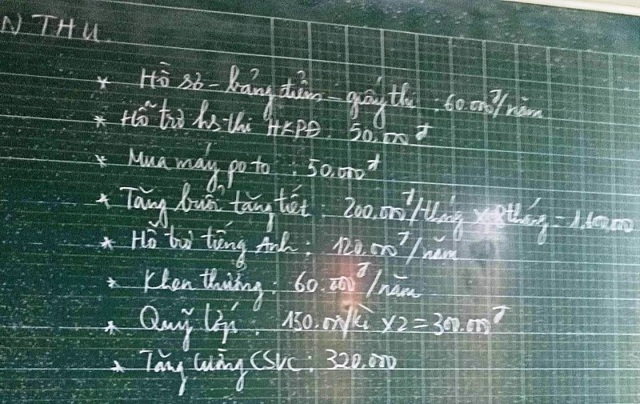 N THU.
* Hồ sơ - bảng điểm - giấy thi : 60.000đ/năm
* Hỗ trợ hs thi HKPĐ : 50.000đ
* Mua máy po to : 50.000đ
* Tăng buổi tăng tiết : 200.000đ/tháng x 8 tháng = 1.600.000
* Hỗ trợ tiếng Anh : 120.000đ/năm
* Khen thưởng : 60.000đ/năm
* Quỹ lớp : 150.000/kì x 2 = 300.000đ
* Tăng cường CSVC : 320.000